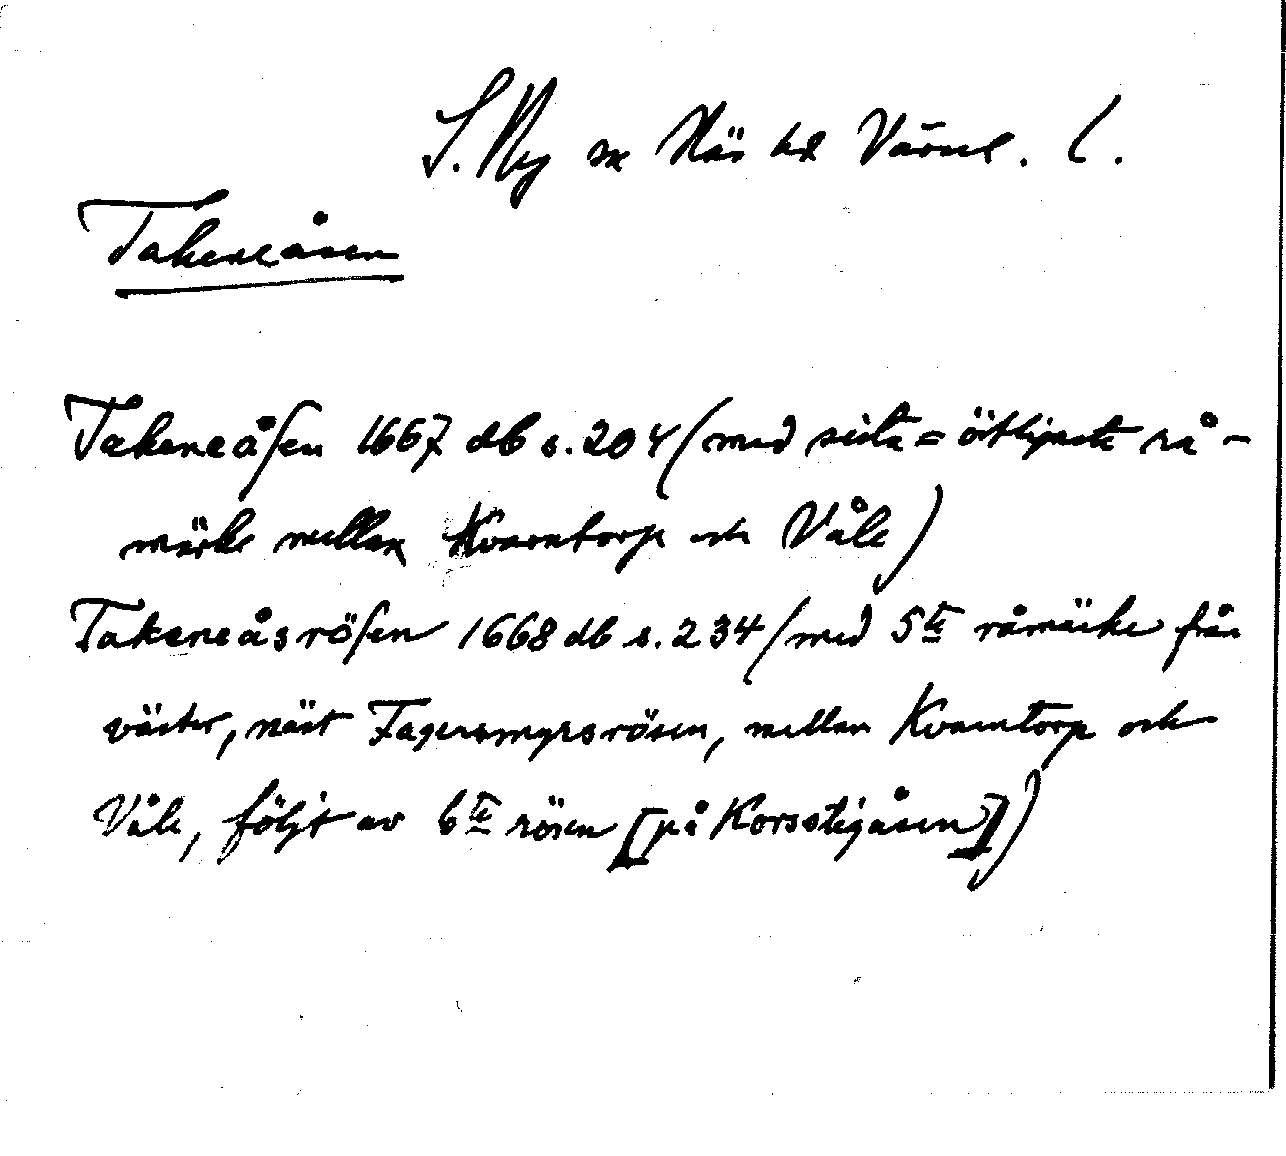 S. Ny sn Näs hd Värml. l.
Takeneåsen
Takeneåsen 1667 db s. 204 (med sista = östligaste rå-
märke mellan Kvarntorp och Våle)
Takeneåsrösen 1668 db s. 234 (med 5te råmärke från
väster, näst Fagersmyrsrösen, mellan Kvarntorp och
Våle, följt av 6te rösen [på Korsstigåsen])